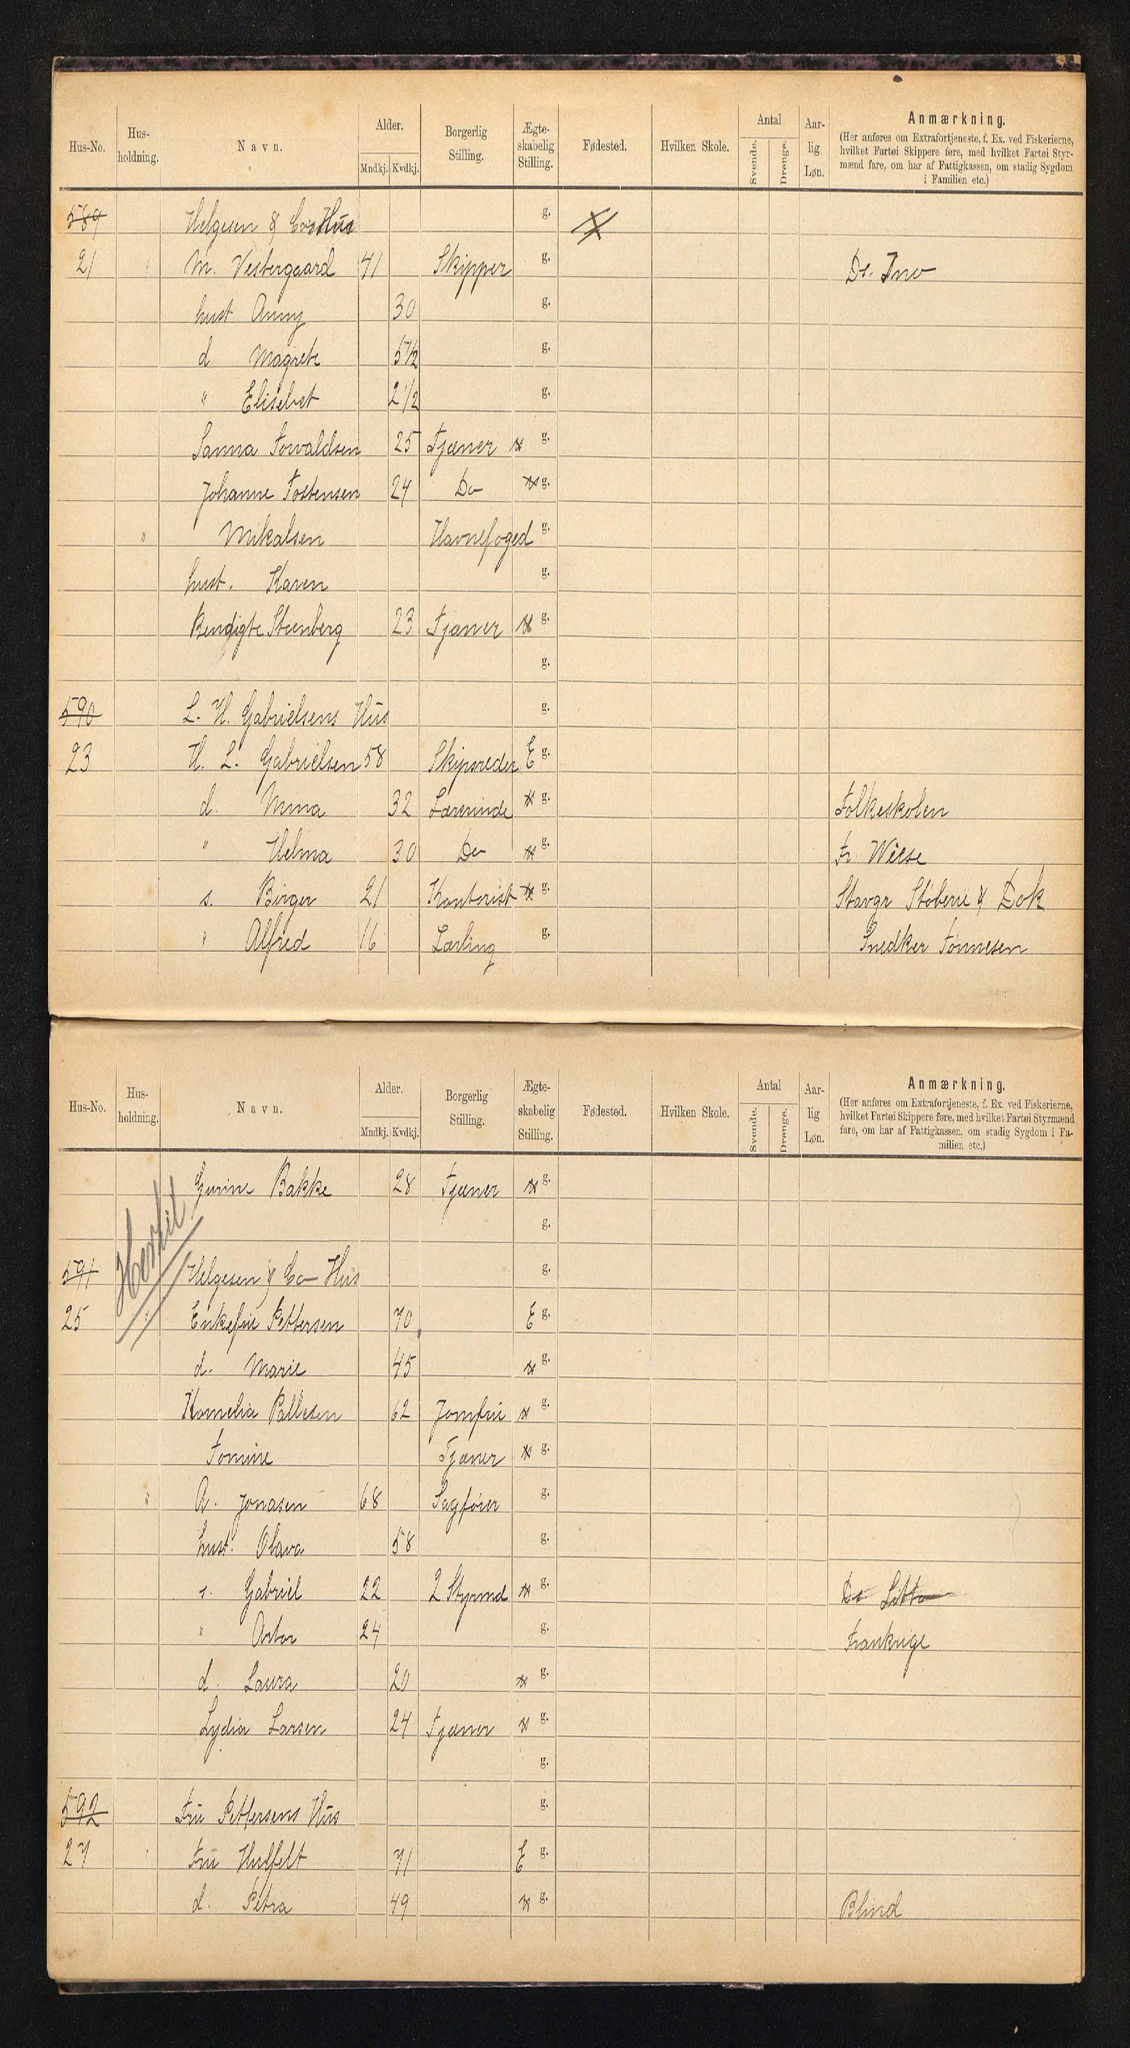 Hus-No. Hus-holdning. Navn. Alder. Mndkj. Kvdkj. Borgerlig Stilling. Ægte-skabelig Stilling. Fødested. Hvilken Skole. Antal Svende. Drenge. Aar-lig Løn. Anmærkning.
(Her anføres om Extrafortjeneste, f. Ex. ved Fiskerierne,
hvilket Fartøi Skippere føre, med hvilket Fartøi Styr-
mænd fare, om har af Fattigkassen, om stadig Sygdom
i Familien etc.)
589 Helgesen & Cos Hus g.
21 " M. Vestergaard 41 Skipper g. Ds. Ino
hust Anny 30 g.
d Magrete 5 1/2 g.
" Elisebet 2 1/2 g.
Sanna Towaldsen 25 Tjener * g.
Johanne Tostensen 24 Do * g.
" Mikalsen Havnefoged g.
hust. Karen g.
Bendigte Steenberg 23 Tjener * g.
g.
590 L. H. Gabrielsens Hus g.
23 H. L. Gabrielsen 58 Skipsreder E g.
d. Mina 32 Lærerinde * g. Folkeskolen
" Helma 30 Do * g. Fr. Wiese
s. Birger 21 Kontorist * g. Stavgr Støberie & Dok
" Alfred 16 Lærling g. Snedker Tønnesen
Hus-No. Hus-holdning. Navn. Alder. Mndkj. Kvdkj. Borgerlig Stilling. Ægte-skabelig Stilling. Fødested. Hvilken Skole. Antal Svende. Drenge. Aar-lig Løn. Anmærkning.
(Her anføres om Extrafortjeneste, f. Ex. ved Fiskerierne,
hvilket Fartøi Skippere føre, med hvilket Fartøi Styrmænd
fare, om har af Fattigkassen, om stadig Sygdom i Fa-
milien etc.)
Gurine Bakke 28 Tjener * g.
g.
Hertil
591 Helgesen & Co Hus g.
25 " Enkefru Pettersen 70 E g.
d. Marie 45 * g.
Kornelia Pallesen 62 Jomfru * g.
Tomine Tjener * g.
" A. Jonasen 68 Sagfører g.
hust. Olava 58 g.
s. Gabriel 22 2 Styrmd * g. Ds Litta
" Artor 24 g. Frankrige
d. Laura 20 * g.
Lydia Larsen 24 Tjener * g.
g.
592 Fru Pettersens Hus g.
27 " Fru Hvitfelt 71 E g.
d. Petra 49 * g. Blind